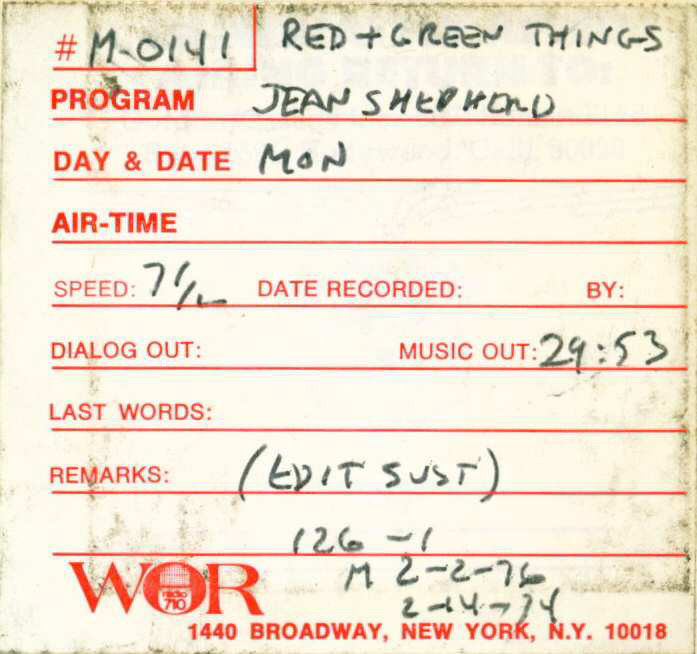 # M-0141 RED + GREEN THINGS
PROGRAM JEAN SHEPHERD
DAY & DATE MON
AIR-TIME
SPEED: 7 1/2 DATE RECORDED: BY:
DIALOG OUT: MUSIC OUT: 29:53
LAST WORDS:
REMARKS: (EDIT SUST)
126-1
M 2-2-76
2-14-74
WOR
radio
710
1440 BROADWAY, NEW YORK, N.Y. 10018